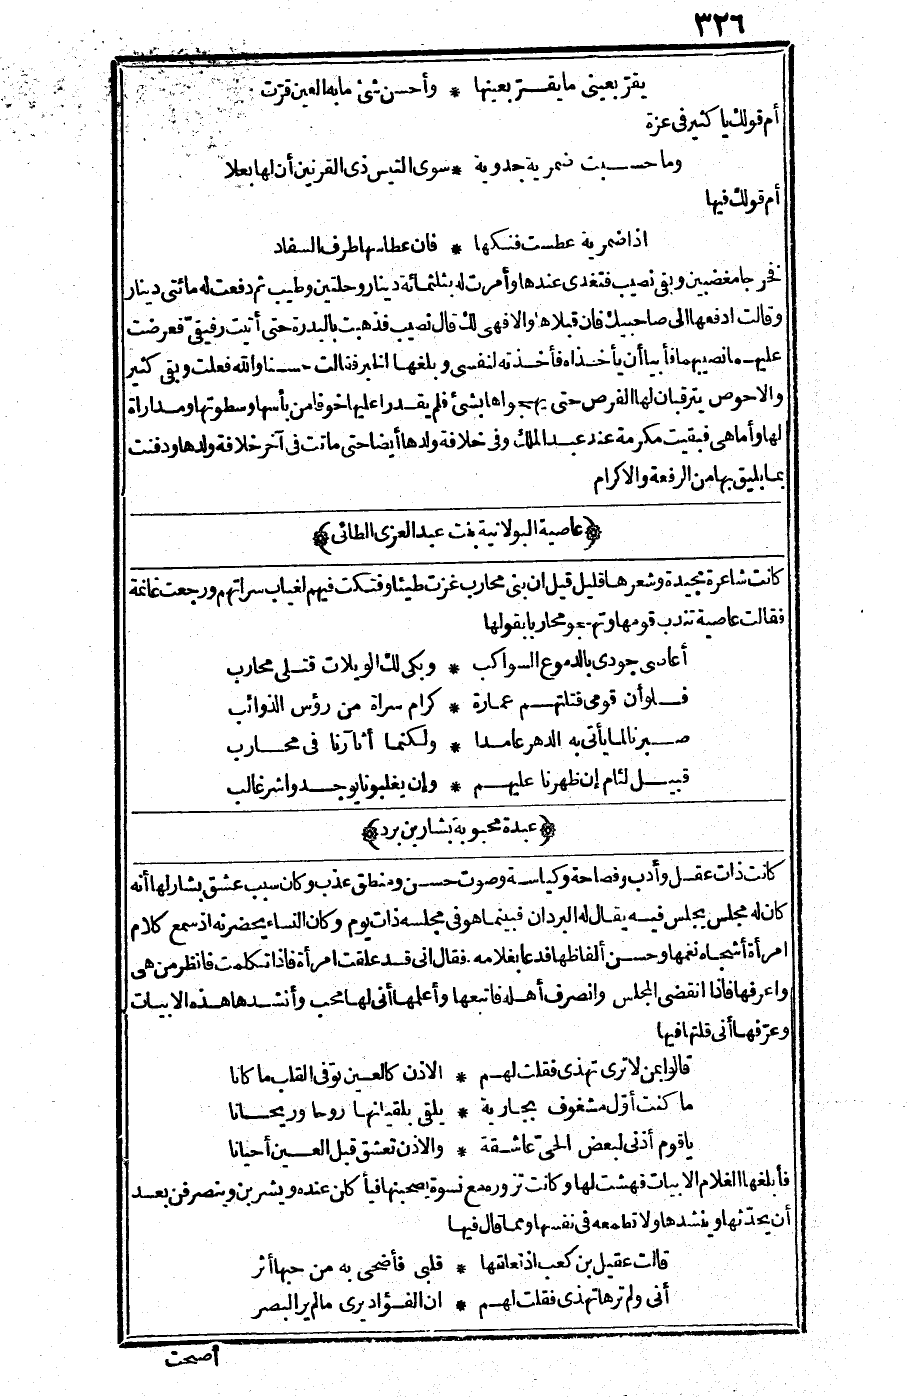 ٣٢٦
يقر بعيني ما يقر بعينها * وأحسن شئ ما به العين قرت
أم قولك يا كثير في عزة
وما حسبت ضمرية جدوية * سوى التيس ذي القرنين أن لها بعلا
أم قولك فيها
اذا ضمرية عطست فنكها * فان عطاسها طرف السفاد
فخرجا مغضبين وبقي نصيب فتغدى عندها وأمرت له بثلثمائة دينار وحلتين وطيب ثم دفعت له مائتي دينار
وقالت ادفعها الى صاحبيك فان قبلاها والا فهي لك قال نصيب فذهبت بالبدرة حتى أتيت رفيقيّ فعرضت
عليهما نصيبهما فأبيا أن يأخذاه فأخذته لنفسي وبلغها الخبر فقالت حسنا والله فعلت وبقي كثير
والاحوص يترقبان لها الفرص حتى يهجواها بشئ فلم يقدرا عليها خوفا من بأسها وسطوتها ومداراة
لها وأما هي فبقيت مكرمة عند عبد الملك وفي خلافة ولدها أيضا حتى ماتت في آخر خلافة ولدها ودفنت
بما يليق بها من الرفعة والاكرام
﴿عاصية البولانية بنت عبد العزى الطائي﴾
كانت شاعرة مجيدة وشعرها قليل قيل ان بني محارب غزت طيئا وفتكت فيهم لغياب سراتهم ورجعت غانمة
فقالت عاصية تندب قومها وتهجو محاربا بقولها
أعاصى جودي بالدموع السواكب * وبكي لك الويلات قتلى محارب
فلو أن قومي قتلتهم عمارة * كرام سراة من رؤس الذوائب
صبرنا لما يأتي به الدهر عامدا * ولكنما أثآرنا في محارب
قبيل لئام إن ظهرنا عليهم * وإن يغلبونا يوجدوا شر غالب
﴿عبدة محبوبة بشار بن برد﴾
كانت ذات عقل وأدب وفصاحة وكياسة وصوت حسن ومنطق عذب وكان سبب عشق بشار لها أنه
كان له مجلس يجلس فيه يقال له البردان فبينما هو في مجلسه ذات يوم وكان النساء يحضرنه اذ سمع كلام
امرأة أشجاه نغمها وحسن ألفاظها فدعا بغلامه. فقال اني قد علقت امرأة فاذا تكلمت فانظر من هي
واعرفها فاذا انقضى المجلس وانصرف أهله فاتبعها وأعلمها أني لها محب وأنشدها هذه الابيات
وعرّفها أني قلتها فيها
قالوا بمن لا ترى تهذي فقلت لهم * الاذن كالعين توفي القلب ما كانا
ما كنت أوّل مشغوف بجارية * يلقى بلقيانها روحا وريحانا
يا قوم أذني لبعض الحيّ عاشقة * والاذن تعشق قبل العين أحيانا
فأبلغها الغلام الابيات فهشت لها وكانت تزوره مع نسوة يصحبنها فيأكلن عنده ويشربن وينصرفن بعد
أن يحدّثها وينشدها ولا تطمعه في نفسها ومما قال فيها
قالت عقيل بن كعب اذ تعلقها * قلبي فأضحى به من حبها أثر
أنى ولم ترها تهذي فقلت لهم * ان الفؤاد يرى ما لم ير البصر
أصبحت